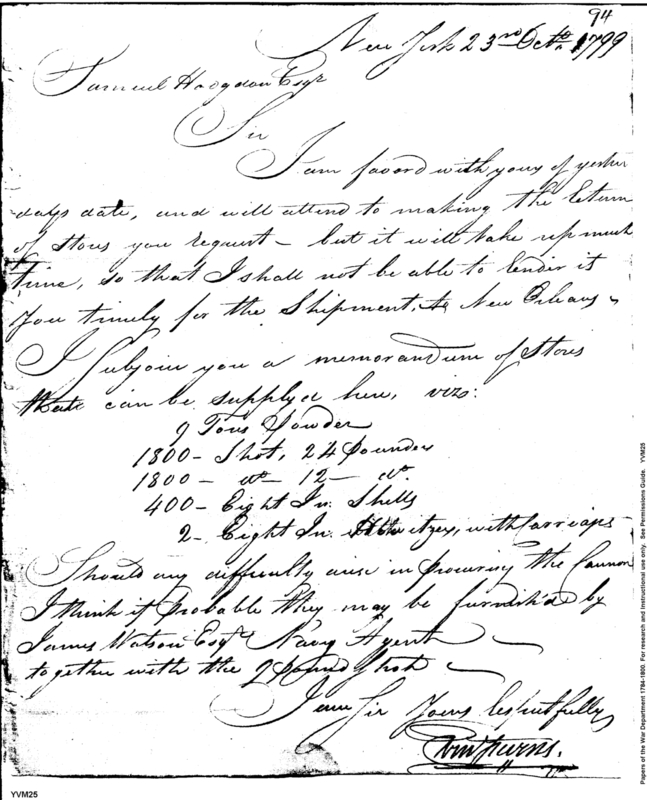 94
New York 23rd Octo. 1799
Samuel Hodgdon Esqr
Sir
I am favord with yours of yester
days date, and will attend to making the Return
of Stores you Request – but it will take up much
time, so that I shall not be able to render it
You timely for the Shipment, to New Orleans
I subjoin you a memorandum of Stores
that can be supplyd here, vizt:
9 Tons Powder
1800 – Shot, 24 pounders
1800 – do – 12 – do.
400 – Eight In. Shells
2 – Eight In. Howitzers, with Carriages
Should any difficulty arise in procuring the Cannon
I think it probable they may be furnish'd by
James Watson Esqr Navy Agent
together with the 9 pound Shot
I am Sir Yours Respectfully
YVM25
Papers of the War Department 1784-1800. For research and instructional use only. See Permissions Guide. YVM25